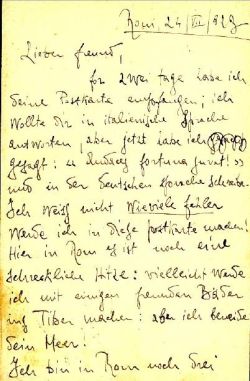 Rom, 24/VII/928
Lieber freund,
for zwei tage habe ich
deine Postkarte empfangen; ich
wollte Dir in italienische Sprache
antworten, aber jetzt habe ich
gesagt: « audaces fortuna juvat! »
und in der Deutschen Sprache schreibe.
Ich weiß nicht wieviele fehler
werde ich in diese postkarte machen!
Hier in Rom es ist noch eine
schreckliche Hitze: vielleicht werde
ich mit einigen freunden Bäder
im Tiber machen: aber ich beneide
dein Meer!
Ich bin in Rom noch drei